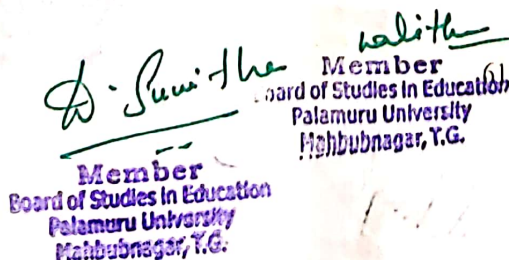 D. Sunitha
Member
Board of Studies in Education
Palamuru University
Mahbubnagar, T.G.
Lalitha
Member
Board of Studies in Education
Palamuru University
Mahbubnagar, T.G.